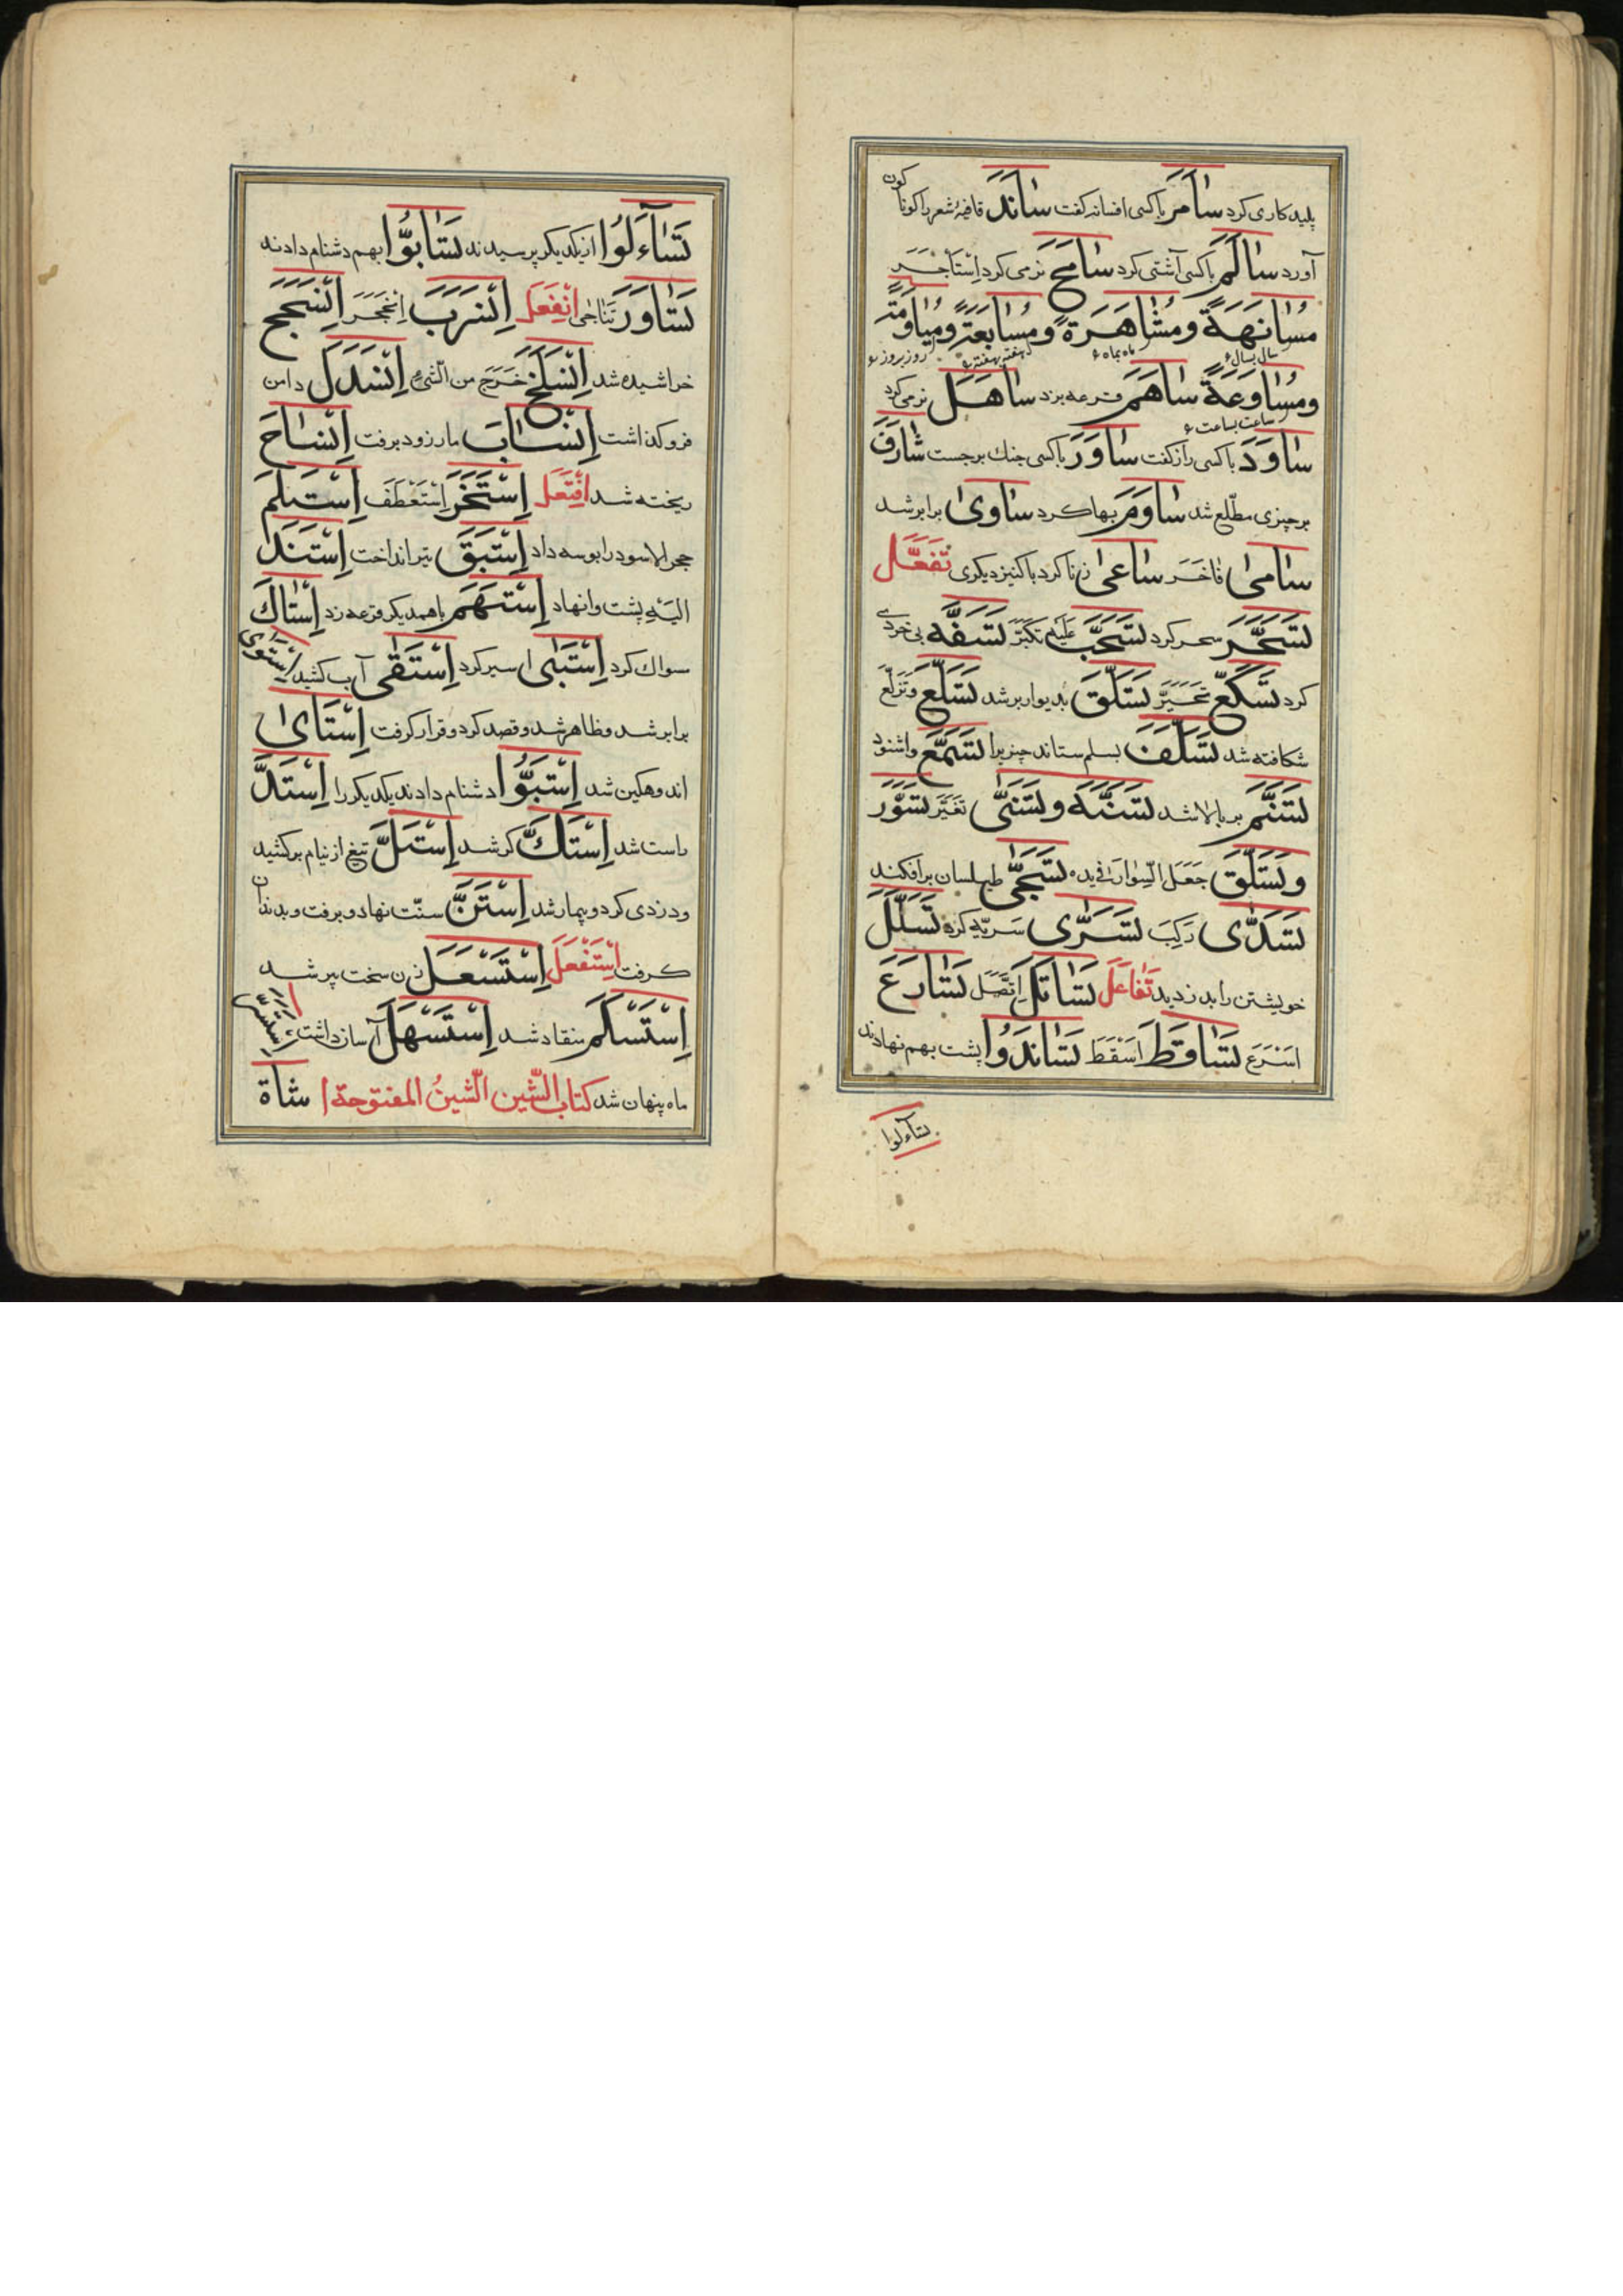 پلیدکاری کرد سَامَرَ باکسی افسانه گفت سَانَدَ قافیهٔ شعر را کوناکون
آورد سَالَمَ باکسی آشتی کرد سَامَحَ نرمی کرد اِسْتَاجَرَ
مُسَانَهَةً ومُشَاهَرَةً ومُسَابَعَةً ومُیَاوَمَةً
سال بسال ماه بماه هفته بهفته روز بروز
ومُسَاوَعَةً سَاهَمَ قرعه بزد سَاهَلَ نرمی کرد
ساعت بساعت
سَاوَدَ باکسی راز گفت سَاوَرَ باکسی جنك برجست شَارَفَ
برچیزی مطّلع شد سَاوَمَ بها کرد سَاوٰی برابر شد
سَامٰی فَاخَرَ سَاعٰی زنا کرد باکنیز دیکری تَفَعَّلَ
تَسَحَّرَ سحر کرد تَسَحَّبَ عَلَیْهِ تَکَبَّرَ تَسَفَّهَ بی خردی
کرد تَسَکَّعَ تَحَیَّرَ تَسَلَّقَ بدیوار بر شد تَسَلَّعَ وتَزَلَّعَ
شکافته شد تَسَلَّفَ بسلم ستاند چیزیرا تَسَمَّعَ واشنود
تَسَنَّمَ بر بالا شد تَسَنَّهَ وتَسَنّٰی تَغَیَّرَ تَسَوَّرَ
وتَسَلَّقَ جَعَلَ السِّوَارَ فی یده تَسَجّٰی طیلسان برافکند
تَسَدّٰی رَکِبَ تَسَرّٰی سَرِیّه کرد تَسَلَّلَ
خویشتن را بدزدید تَفَاعَلَ تَسَاتَلَ اِتَّصَلَ تَسَارَعَ
اَسْرَعَ تَسَاقَطَ اَسْقَطَ تَسَانَدُوا پشت بهم نهادند
تساءلوا
تَسَآءَلُوا از یکدیکر پرسیدند تَسَابُّوا بهم دشنام دادند
تَسَاوَرَ تَنَاجٰی اِنْفَعَلَ اِنْسَرَبَ اِنْجَحَرَ اِنْسَحَجَ
خراشیده شد اِنْسَلَخَ خَرَجَ من الشّیءِ اِنْسَدَلَ دامن
فرو کذاشت اِنْسَابَ مار زود برفت اِنْسَاحَ
ریخته شد اِفْتَعَلَ اِسْتَخَرَ اِسْتَعْطَفَ اِسْتَلَمَ
حجر الاسود را بوسه داد اِسْتَبَقَ تیر انداخت اِسْتَنَدَ
اِلَیْهِ پشت وانهاد اِسْتَهَمَ باهمدیکر قرعه زد اِسْتَاكَ
سواك کرد اِسْتَبٰی اسیر کرد اِسْتَقٰی آب کشید اِسْتَوٰی
برابر شد وظاهر شد وقصد کرد وقرار کرفت اِسْتَایٰ
اندوهکین شد اِسْتَبُّوا دشنام دادند یکدیکر را اِسْتَدَّ
راست شد اِسْتَكَّ کر شد اِسْتَلَّ تیغ از نیام برکشید
ودزدی کرد وبیمار شد اِسْتَنَّ سنّت نهاد وبرفت وبدندان
کرفت اِسْتَفْعَلَ اِسْتَسْعَلَ زن سخت پیر شد
اِسْتَسْلَمَ منقاد شد اِسْتَسْهَلَ آسان داشت اِسْتَسَرَّ
ماه پنهان شد کتاب الشّین الشّینُ المفتوحة شَاةٌ